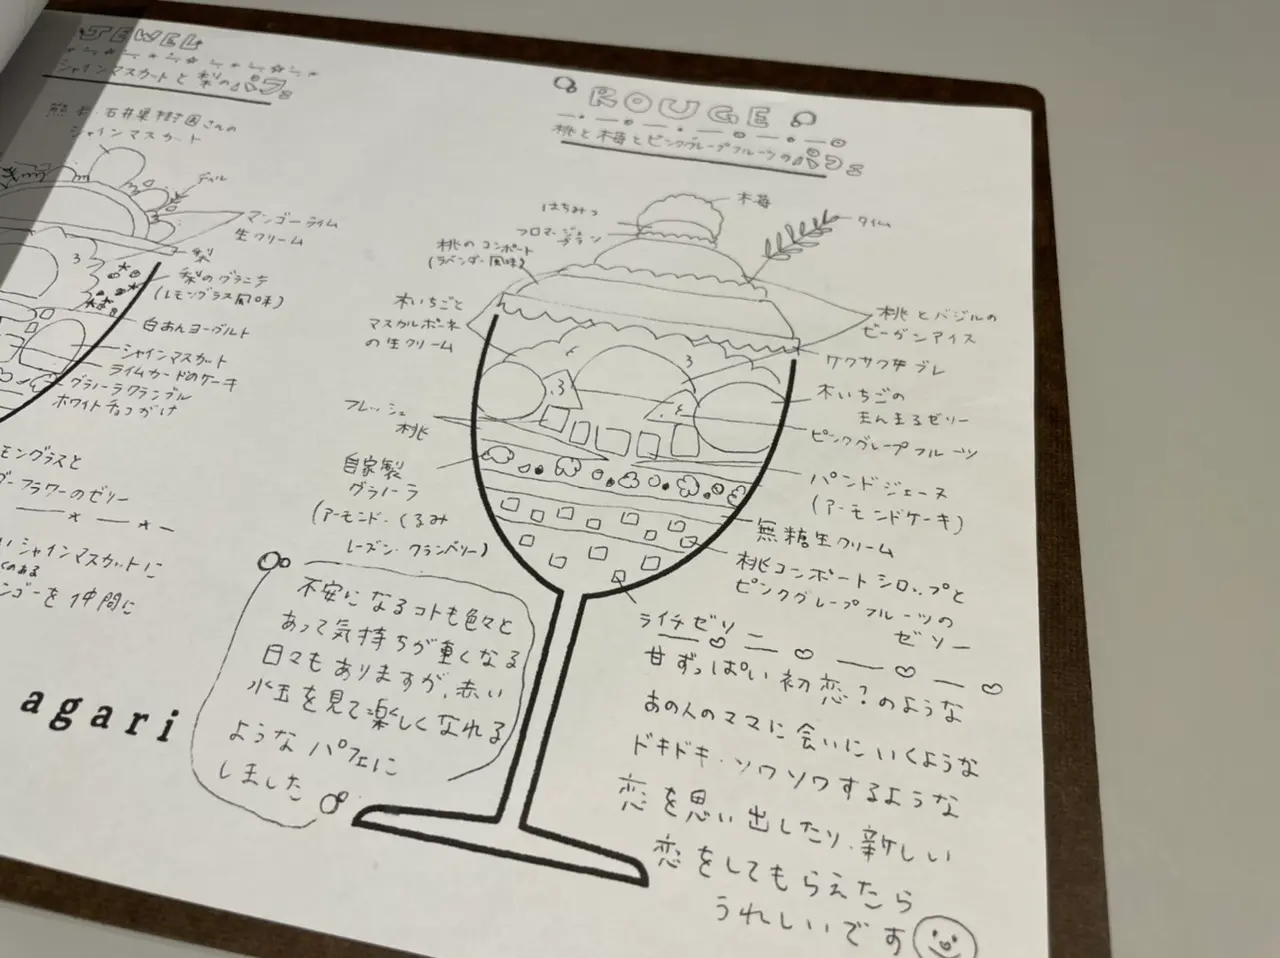 JEWEL
シャインマスカットと梨のパフェ
熊本・石井果樹園さんの
シャインマスカット
ディル
マンゴーライム
生クリーム
梨
梨のグラニテ
(レモングラス風味)
白あんヨーグルト
シャインマスカット
ライムカードのケーキ
グラノーラクランブル
ホワイトチョコがけ
モングラスと
ダーフラワーのゼリー
いシャインマスカットに
のある
ンゴーを仲間に
agari
ROUGE
桃と木苺とピンクグレープフルーツのパフェ
木苺
はちみつ
フロマージュ
ブラン
タイム
桃のコンポート
(ラベンダー風味)
木いちごと
マスカルポーネ
の生クリーム
桃とバジルの
ビーガンアイス
サクサクサブレ
木いちごの
まんまるゼリー
ピンクグレープフルーツ
フレッシュ
桃
パンドジェーヌ
(アーモンドケーキ)
自家製
グラノーラ
(アーモンド・くるみ
レーズン・クランベリー)
無糖生クリーム
桃コンポートシロップと
ピンクグレープフルーツの
ゼリー
ライチゼリー
不安になるコトも色々と
あって気持ちが重くなる
日々もありますが、赤い
水玉を見て楽しくなれる
ようなパフェに
しました
甘ずっぱい初恋?のような
あの人のママに会いにいくような
ドキドキ・ソワソワするような
恋を思い出したり、新しい
恋をしてもらえたら
うれしいです